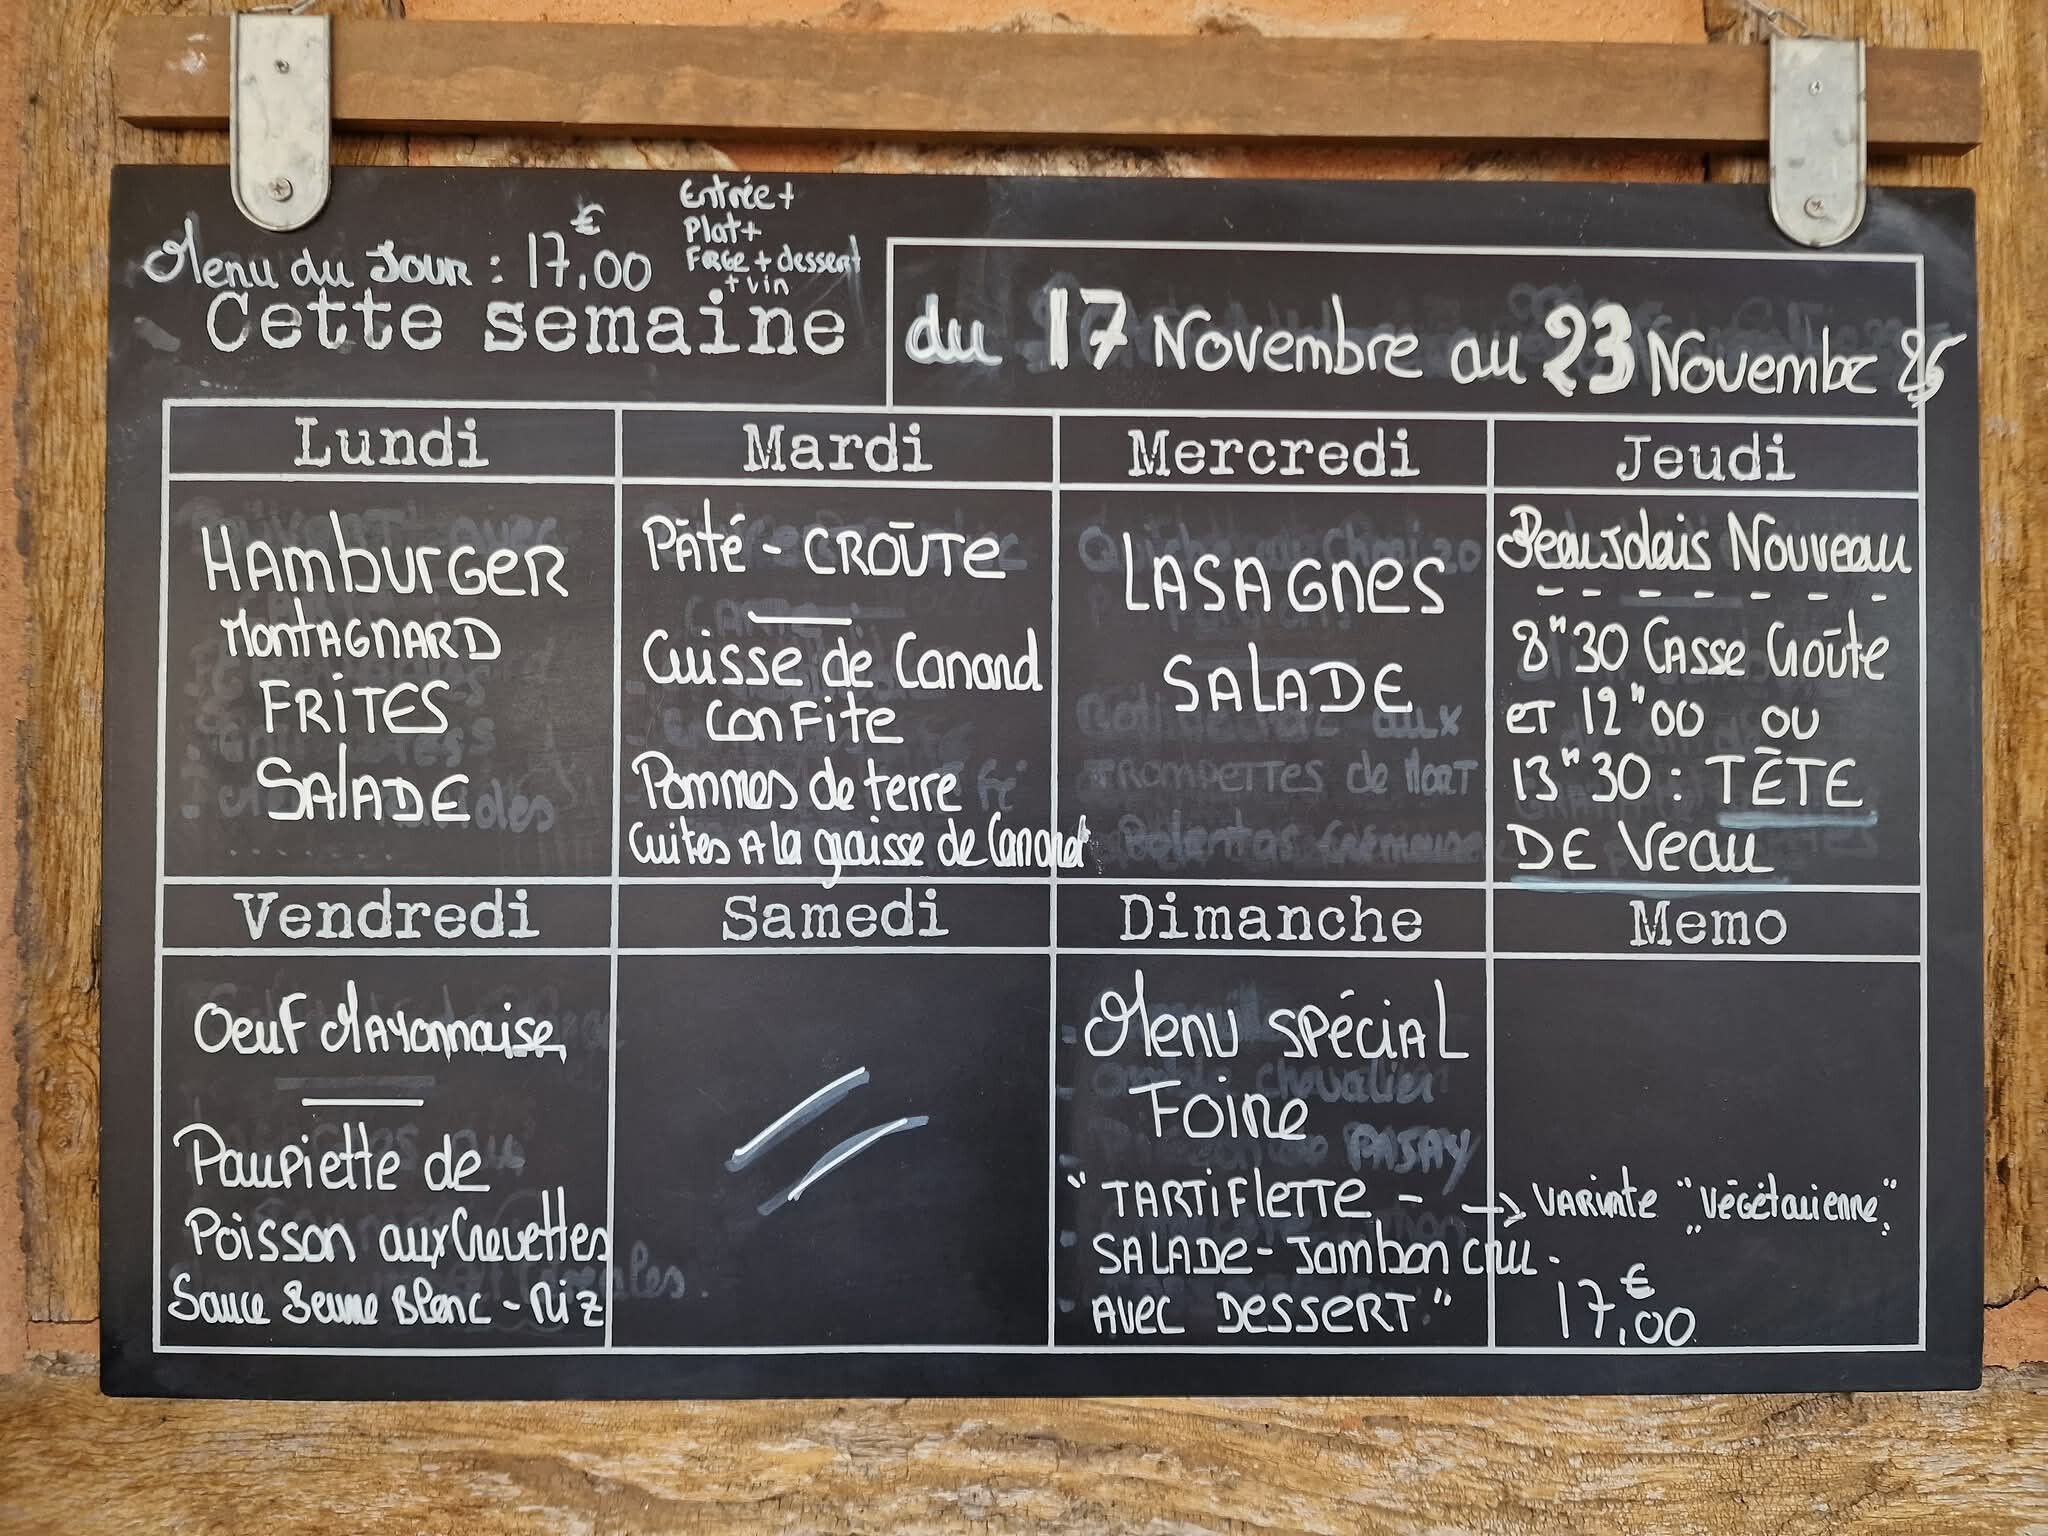 Menu du Jour : 17,00 €
Entrée +
Plat +
+ dessert
+ vin
Cette semaine
du 17 Novembre au 23 Novembre 25
Lundi
HAMBURGER
MONTAGNARD
FRITES
SALADE
Mardi
Pâté - CROÛTE
Cuisse de Canard
CONFITE
Pommes de terre
Cuites A la graisse de Canard
Mercredi
LASAGNES
SALADE
Jeudi
Beaujolais NOUVEAU
8"30 Casse Croûte
et 12"00 ou
13"30 : TÊTE
DE Veau
Vendredi
Oeuf Mayonnaise
Paupiette de
Poisson aux Crevettes
Sauce Beurre Blanc - Riz
Samedi
Dimanche
Menu SPÉCIAL
FOIRE
"TARTIFLETTE -
SALADE - Jambon cru -
AVEC DESSERT"
Memo
→ VARIANTE "végétarienne"
17,00 €